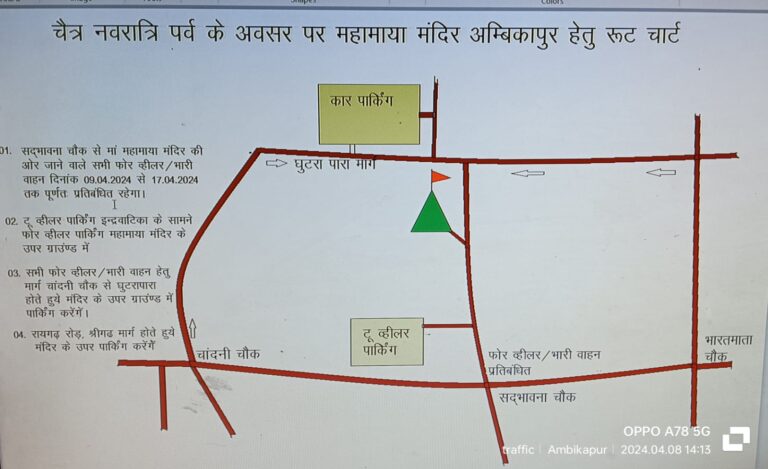 चैत्र नवरात्रि पर्व के अवसर पर महामाया मंदिर अम्बिकापुर हेतु रूट चार्ट
कार पार्किंग
01. सद्भावना चौक से मां महामाया मंदिर की
ओर जाने वाले सभी फोर व्हीलर/भारी
वाहन दिनांक 09.04.2024 से 17.04.2024
तक पूर्णतः प्रतिबंधित रहेगा।
घुटरा पारा मार्ग
02. टू व्हीलर पार्किंग इन्द्रवाटिका के सामने
फोर व्हीलर पार्किंग महामाया मंदिर के
उपर ग्राउंण्ड में
03. सभी फोर व्हीलर/भारी वाहन हेतु
मार्ग चांदनी चौक से घुटरापारा
होते हुये मंदिर के उपर ग्राउण्ड में
पार्किंग करेंगें।
04. रायगढ़ रोड़, श्रीगढ मार्ग होते हुये
मंदिर के उपर पार्किंग करेंगें
टू व्हीलर
पार्किंग
चांदनी चौक
फोर व्हीलर/भारी वाहन
प्रतिबंधित
भारतमाता
चौक
सद्भावना चौक
OPPO A78 5G
traffic | Ambikapur | 2024.04.08 14:13